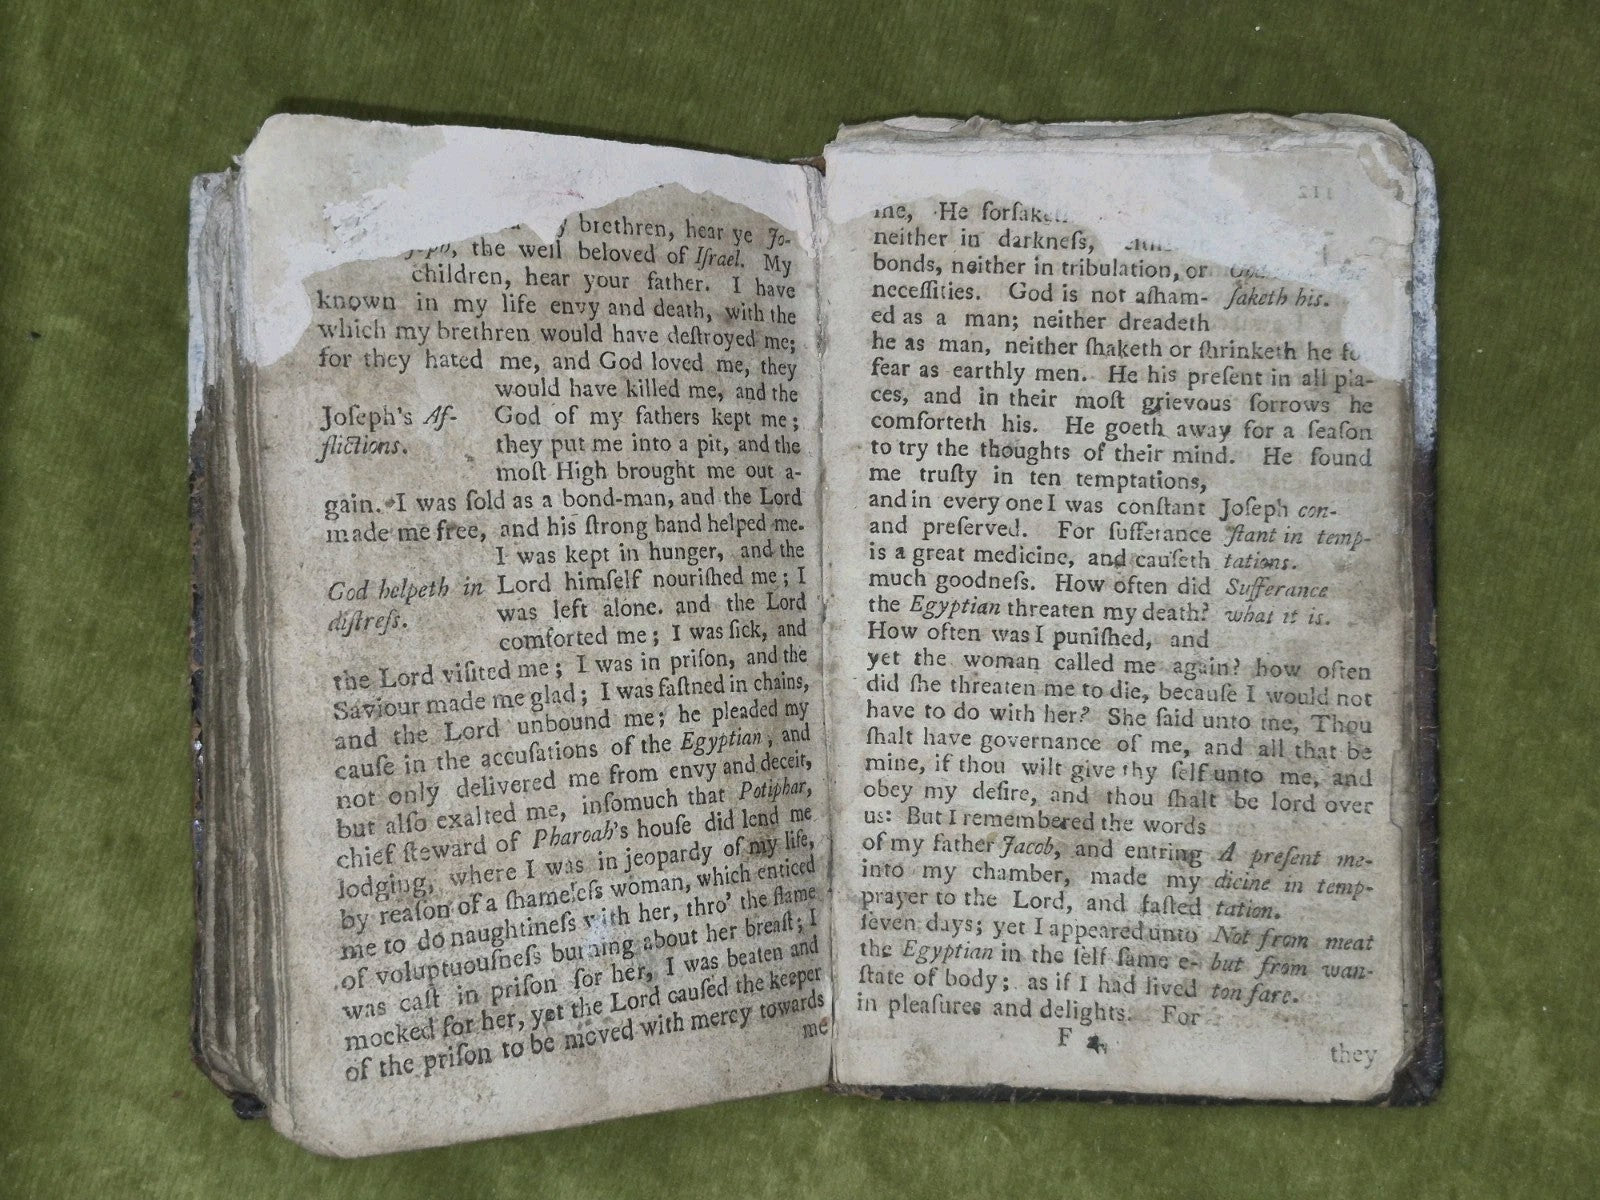 brethren, hear ye Jo-
the well beloved of Iſrael. My
children, hear your father. I have
known in my life envy and death, with the
which my brethren would have deſtroyed me;
for they hated me, and God loved me, they
would have killed me, and the
Joſeph's Af- God of my fathers kept me;
flictions. they put me into a pit, and the
moſt High brought me out a-
gain. I was ſold as a bond-man, and the Lord
made me free, and his ſtrong hand helped me.
I was kept in hunger, and the
God helpeth in Lord himſelf nouriſhed me; I
diſtreſs. was left alone. and the Lord
comforted me; I was ſick, and
the Lord viſited me; I was in priſon, and the
Saviour made me glad; I was faſtned in chains,
and the Lord unbound me; he pleaded my
cauſe in the accuſations of the Egyptian, and
not only delivered me from envy and deceit,
but alſo exalted me, inſomuch that Potiphar,
chief ſteward of Pharoah's houſe did lend me
lodging, where I was in jeopardy of my life,
by reaſon of a ſhameleſs woman, which enticed
me to do naughtineſs with her, thro' the flame
of voluptuouſneſs burning about her breaſt; I
was caſt in priſon for her, I was beaten and
mocked for her, yet the Lord cauſed the keeper
of the priſon to be moved with mercy towards
me
me, He
neither in darkneſs,
bonds, neither in tribulation, or
neceſſities. God is not aſham- ſaketh his.
ed as a man; neither dreadeth
he as man, neither ſhaketh or ſhrinketh he
fear as earthly men. He his preſent in all pla-
ces, and in their moſt grievous ſorrows he
comforteth his. He goeth away for a ſeaſon
to try the thoughts of their mind. He found
me truſty in ten temptations,
and in every one I was conſtant Joſeph con-
and preſerved. For ſufferance ſtant in temp-
is a great medicine, and cauſeth tations.
much goodneſs. How often did Sufferance
the Egyptian threaten my death? what it is.
How often was I puniſhed, and
yet the woman called me again? how often
did ſhe threaten me to die, becauſe I would not
have to do with her? She ſaid unto me, Thou
ſhalt have governance of me, and all that be
mine, if thou wilt give thy ſelf unto me, and
obey my deſire, and thou ſhalt be lord over
us: But I remembered the words
of my father Jacob, and entring A preſent me-
into my chamber, made my dicine in temp-
prayer to the Lord, and faſted tation.
ſeven days; yet I appeared unto Not from meat
the Egyptian in the ſelf ſame e- but from wan-
ſtate of body; as if I had lived ton fare.
in pleaſures and delights. For
F
they